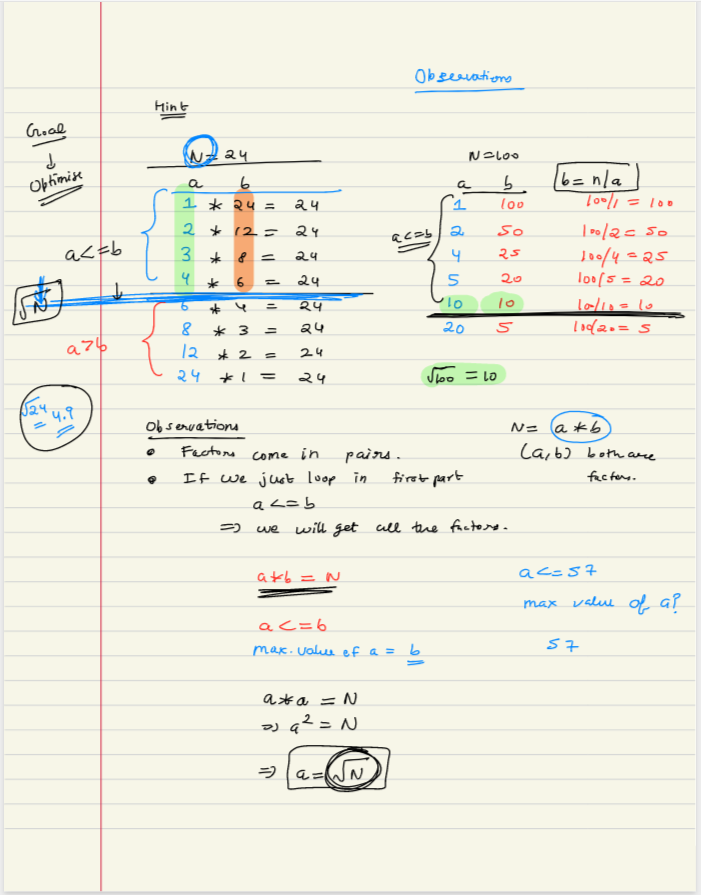 Observations
Hint
Goal
↓
Optimise
N = 24
a b
1 * 24 = 24
2 * 12 = 24
3 * 8 = 24
4 * 6 = 24
6 * 4 = 24
8 * 3 = 24
12 * 2 = 24
24 * 1 = 24
a<=b
√N
a>b
√24 4.9
N=100
a b b = n/a
1 100 100/1 = 100
2 50 100/2 = 50
4 25 100/4 = 25
5 20 100/5 = 20
10 10 10/10 = 10
20 5 100/20 = 5
a<=b
√100 = 10
Observations
• Factors come in pairs.
• If we just loop in first part
a<=b
=> we will get all the factors.
N= a*b
(a,b) both are
factors.
a*b = N
a<=b
max. value of a = b
a<=57
max value of a?
57
a*a = N
=> a² = N
=> a=√N